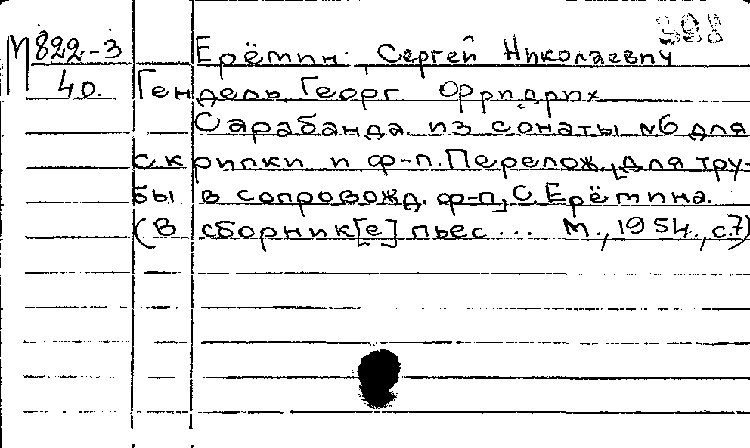 398
М822-3 Ерёмин, Сергей Николаевич
40. Гендель, Георг Фридрих
Сарабанда из сонаты №6 для
скрипки и ф-п. Перелож. для тру-
бы в сопровожд. ф-п, С. Ерёмина.
(В сборник[е] пьес... М., 1954, с.7)